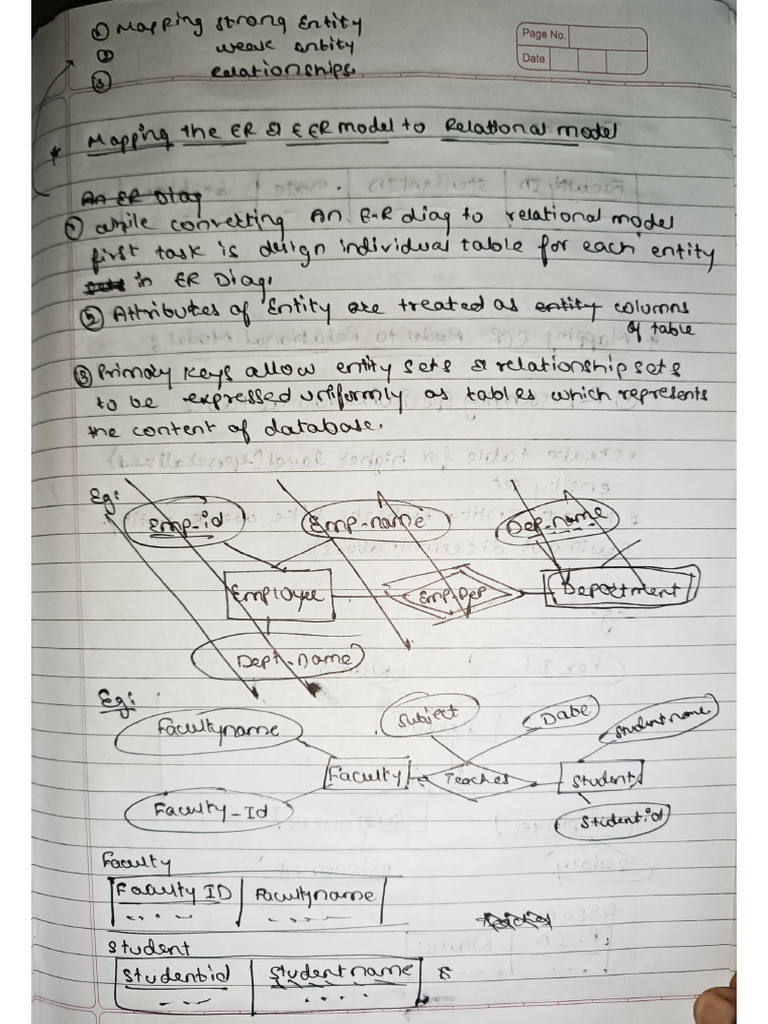 ① Mapping strong Entity
② weak entity
③ Relationships.
Page No.
Date
* Mapping the ER & EER model to Relational model
An ER Diag
① while converting An E-R diag to relational model
first task is design individual table for each entity
in ER Diag.
② Attributes of Entity are treated as entity columns
of table
③ Primary keys allow entity sets & relationship sets
to be expressed uniformly as tables which represents
the content of database.
Eg:
Emp-id
Emp-name
Dep-name
Employee
Emp-Dep
Department
Dept-name
Eg:
Facultyname
Subject
Date
Studentname
Faculty
Teaches
Student
Faculty-Id
Studentid
Faculty
Faculty ID
Facultyname
Student
Studentid
Studentname